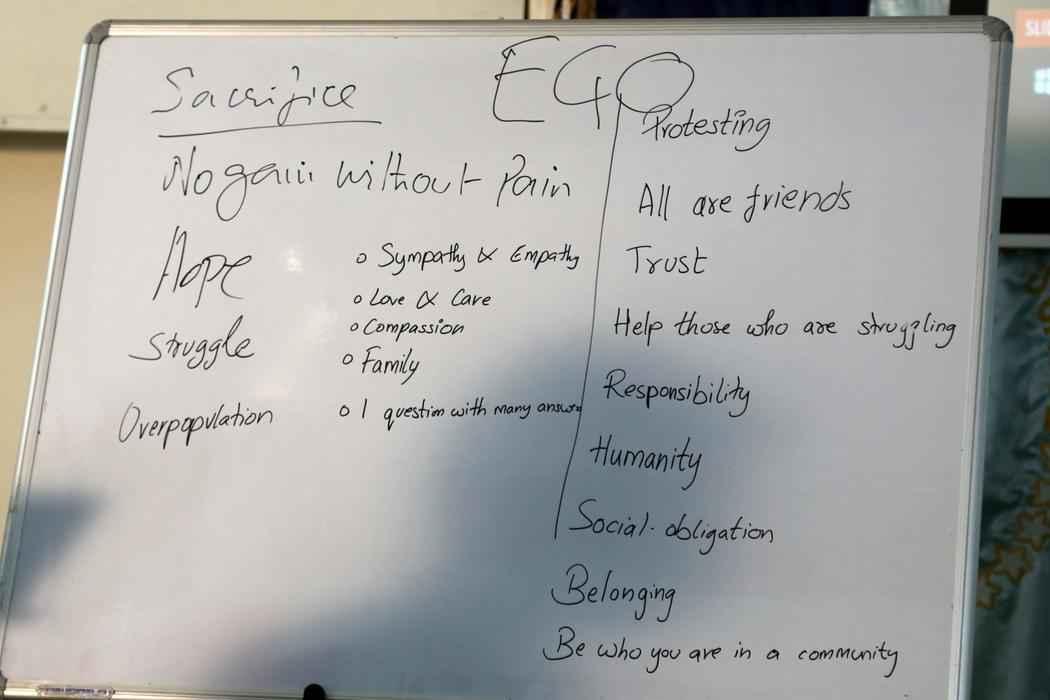 Sacrifice
EGO
No gain without Pain
Hope
Struggle
Overpopulation
o Sympathy & Empathy
o Love & Care
o Compassion
o Family
o 1 question with many answers
Protesting
All are friends
Trust
Help those who are struggling
Responsibility
Humanity
Social obligation
Belonging
Be who you are in a community